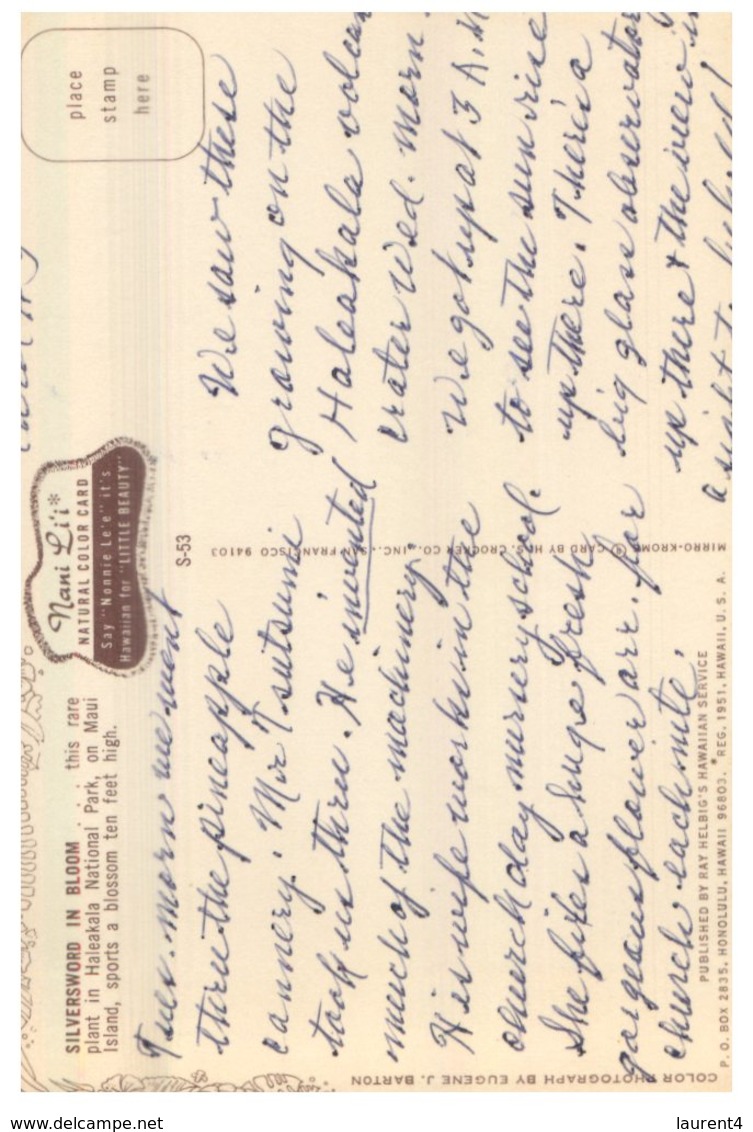 SILVERSWORD IN BLOOM . . . this rare
plant in Haleakala National Park, on Maui
Island, sports a blossom ten feet high.
Nani Li'i*
NATURAL COLOR CARD
Say "Nonnie Le'e" it's
Hawaiian for "LITTLE BEAUTY"
place
stamp
here
S-53
Tues. morn we went
thru the pineapple
cannery. Mr Tsutsumi
took us thru. He invented
much of the machinery.
His wife works in the
church day nursery school.
She fixes a huge fresh
gorgeous flower arr. for
church each nite.
We saw these
growing on the
Haleakala volcan
crater Wed. morn.
We got up at 3 A.M
to see the sun rise
up there. There's a
big glass observator
up there & the view i
a sight to behold!
MIRRO-KROME ® CARD BY H. S. CROCKER CO., INC., SAN FRANCISCO 94103
COLOR PHOTOGRAPH BY EUGENE J. BARTON
PUBLISHED BY RAY HELBIG'S HAWAIIAN SERVICE
P. O. BOX 2835, HONOLULU, HAWAII 96803. *REG. 1951, HAWAII, U. S. A.
delcampe.net
laurent4